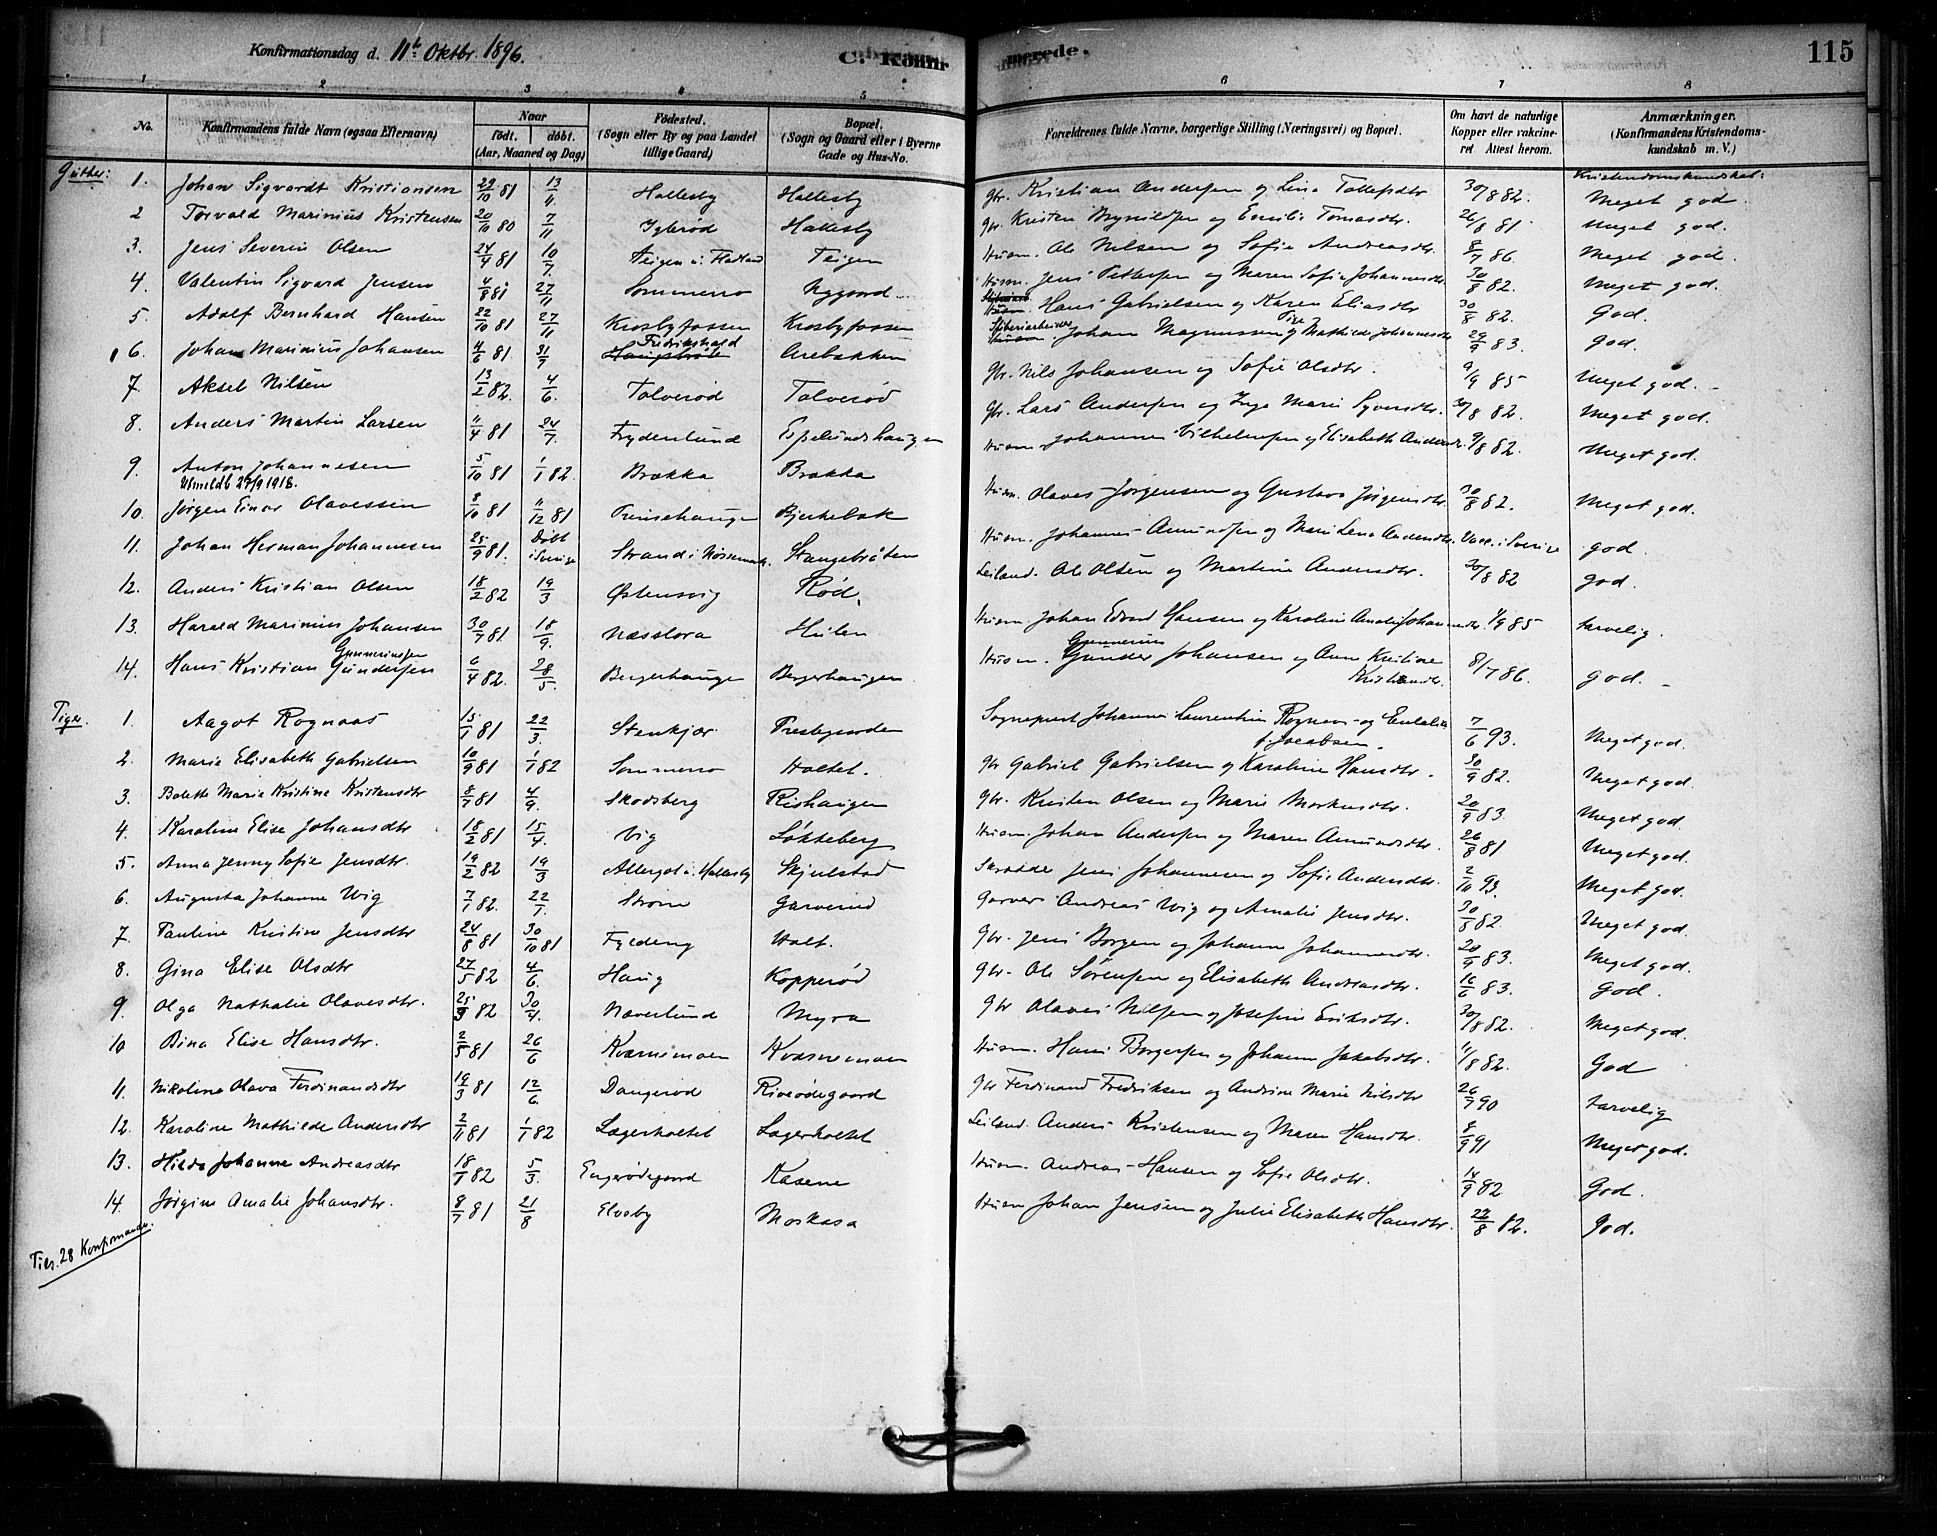 Konfirmationsdag d. 11te Oktbr. 1896. C. Konfirmerede. 115
1 2 3 4 5 6 7 8
No. Konfirmandens fulde Navn (ogsaa Efternavn) Naar født. døbt. (Aar, Maaned og Dag) Fødested. (Sogn eller By og paa Landet tillige Gaard) Bopæl. (Sogn og Gaard eller i Byerne Gade og Hus-No. Forældrenes fulde Navne, borgerlige Stilling (Næringsvei) og Bopæl. Om havt de naturlige Kopper eller vakcineret Attest herom. Anmærkninger. (Konfirmandens Kristendomskundskab m. V.)
Gutter: Kristendomskundskab:
1. Johan Sigvardt Kristiansen 29/10 81 13/11 Hallesby Hallesby gbr. Kristian Andersen og Lina Tollefsdtr 30/8 82. Meget god.
2 Torvald Marinius Kristensen 20/10 80 7/11 Hallesby gbr. Kristen Brynildsen og Emilie Tomasdtr. 26/8 81 Meget god.
3. Jens Severin Olsen 24/4 81 10/7. Teigen u. Fladland Teigen Husm. Ole Nilsen og Sofie Andreasdtr. 8/7 86. Meget god.
4. Valentin Sigvard Jensen 4/8 81 27/11 Sommerro Nygaard Husm. Jens Pettersen og Maren Sofie Johannesdtr 30/8 82. Meget god.
5. Adolf Bernhard Hansen 22/10 81 27/11 Krosbyfossen Krosbyfossen Husm. Hans Gabrielsen og Karen Eliasdtr 30/8 82. God.
6. Johan Marinius Johansen 4/6 81 31/7 Fredrikshald Arebakken Sliberiarbeider Johan Magnussen og Pige Mathilde Johannesdtr 29/9 83. god.
7. Aksel Nilsen 13/2 82. 4/6. Tolverød Tolverød gbr. Nils Johansen og Sofie Olsdtr. 9/9 85 Meget god.
8. Anders Martin Larsen 11/4 81 24/7. Frydenlund Espelundshaugen gbr. Lars Andersen og Inge Marie Syversdtr. 30/8 82. Meget god.
9. Anton Johannesen 5/10 81 1/1 82. Brække Brække Husm. Johannes Vilhelmsen og Elisabeth Andersdtr. 9/8 82. Meget god.
Utmeldt 27/9 1918.
10. Jørgen Einar Olavessen 8/10 81 11/12 81 Bjerkebak Husm. Olaves Jørgensen og Gustava Jørgensdtr. 30/8 82. Meget god.
11. Johan Herman Johannesen 25/9 81. Døbt i Sverige Strand i Nössemark. Stangebråten Husm. Johannes Amundsen og Mari Lena Andersdtr. Vacc. i Sverige god
12. Anders Kristian Olsen 18/2 82 19/3 Østensvig Rød. Leiland. Ole Olsen og Martine Andersdtr. 30/8 82 god.
13. Harald Marinius Johansen 30/7 81 18/9. Næsslora Hulen Husm Johan Edvard Hansen og Karoline Amalie Johannesdtr. 1/9 85 tarvelig.
14. Hans Kristian Gundersen Gunneriussen 6/4 82. 28/5. Bergerhaugen Bergerhaugen Husm. Gunder Gunnerius Johansen og Anne Kristine Kristiansdtr. 8/7 86. god.
Piger.
1. Aagot Rognaas 15/1 81 22/3. Stenkjær Prestegaarden Sogneprest Johannes Laurentius Rognaas og Eulalia f. Jacobsen. 7/6 93. Meget god.
2. Marie Elisabeth Gabrielsen 10/9 81 1/1 82 Sommerro Holtet. gbr Gabriel Gabrielsen og Karoline Hansdtr. 30/9 82. Meget god.
3. Bolette Marie Kristine Kristensdtr 8/7 81 4/9. Skodsberg Rishaugen gbr. Kristen Olsen og Marie Markusdtr. 20/9 83. Meget god.
4. Karoline Elise Johansdtr 18/2 81 15/4. Vig Løkkeberg Husm. Johan Andersen og Maren Amundsdtr. 26/8 81 Meget god.
5. Anna Jenny Sofie Jensdtr. 19/2 82 19/3 Allergot u. Hallesby Skjulstad Skrædder Jens Johannesen og Sofie Andersdtr. 2/10 93. Meget god.
6. Augusta Johanne Wig 7/1 82. 22/1. Strøm Garveriet Garver Andreas Wig og Amalie Jensdtr. 30/8 82. Meget god.
7. Pauline Kristine Jensdtr 24/8 81 30/10 81 Fyldeng Holt. gbr. Jens Borgen og Johanne Johannesdtr. 20/9 83. Meget god.
8. Gina Elise Olsdtr 27/5 82 4/6. Haug Kopperød gbr. Ole Sørensen og Elisabeth Andreasdtr. 16/6 83. God.
9. Olga Nathalie Olavesdtr. 25/3 82 30/4. Næverlund Myra gbr Olaves Nilsen og Josefine Eriksdtr. 30/8 82. Meget god.
10 Dina Elise Hansdtr. 2/5 81 26/6 Kværnemoen Kværnemoen Husm. Hans Borgersen og Johanne Jakobsdtr. 11/8 82. God
11. Nikoline Olava Ferdinandsdtr 19/3 81 12/6 Dangerød Riverødegaard gbr Ferdinand Fredriksen og Andrine Marie Nilsdtr 26/7 90 tarvelig
12. Karoline Mathilde Andersdtr 2/11 81 1/1 82 Lagerholtet Lagerholtet Leiland. Anders Kristensen og Maren Hansdtr. 8/9 91 Meget god.
13. Hilda Johanne Andreasdtr 18/1 82 5/3. Engerødegaard Kasene Husm. Andreas Hansen og Sofie Olsdtr. 14/9 82 God.
14. Jørgine Amalie Johansdtr. 8/7 81 21/8 Elveby Moskasa Husm Johan Jensen og Julie Elisabeth Hansdtr. 22/8 82. God.
Tils. 28 Konfirmander.